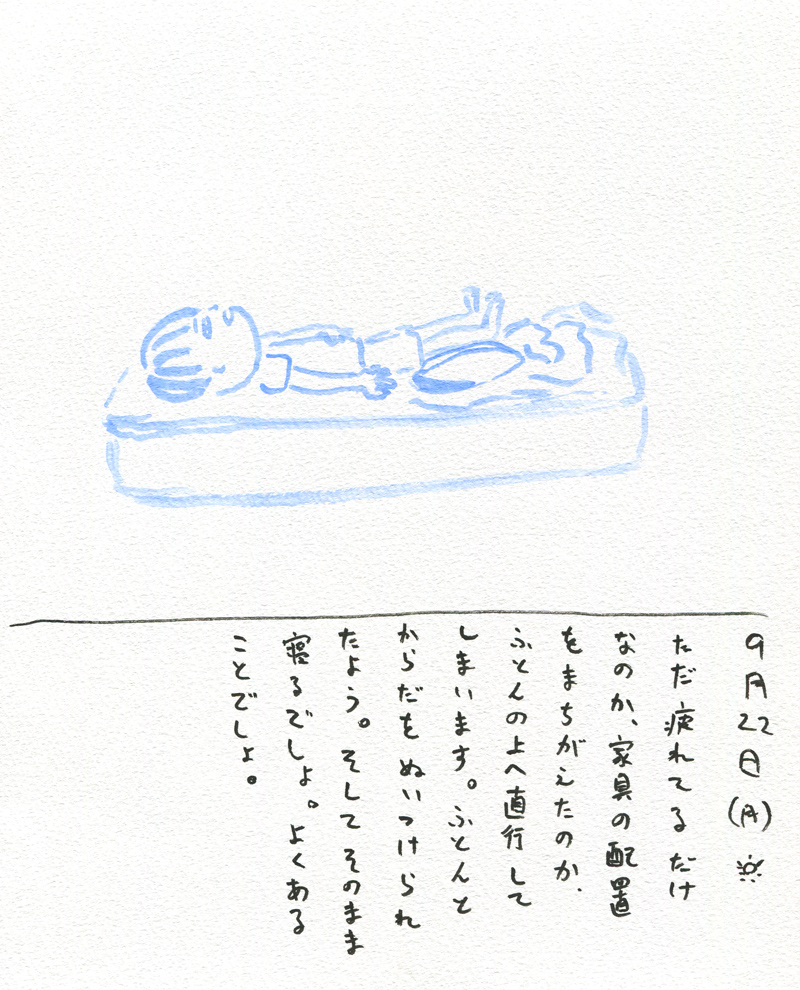 9月22日(月)☀
ただ疲れてるだけ
なのか、家具の配置
をまちがえたのか、
ふとんの上へ直行して
しまいます。ふとんと
からだをぬいつけられ
たよう。そしてそのまま
寝るでしょ。よくある
ことでしょ。